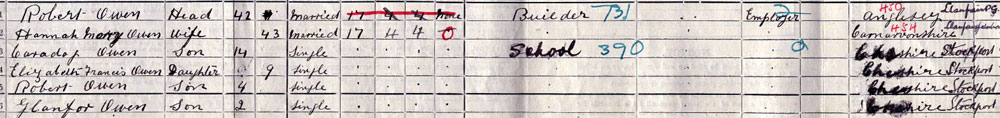 Robert Owen Head 42 Married 17 4 4 None Builder 731 Employer Anglesey 450
Hannah Mary Owen Wife 43 Married 17 4 4 0 Carnarvonshire 454
Caradog Owen Son 14 Single School 390 Cheshire Stockport
Elizabeth Francis Owen Daughter 9 Single Cheshire Stockport
Robert Owen Son 4 Single Cheshire Stockport
Glanfor Owen Son 2 Single Cheshire Stockport